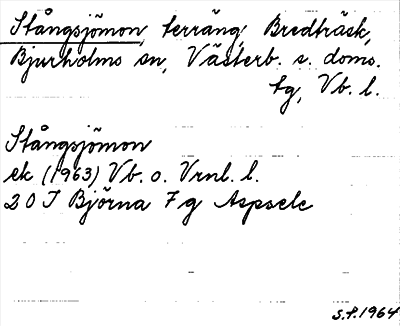 Stångsjömon, terräng, Bredträsk,
Bjurholms sn, Västerb. s. doms.
tg, Vb. l.
Stångsjömon
ek (1963) Vb. o. Vrnl. l.
20 I Björna 7 g Aspsele
S.P. 1964